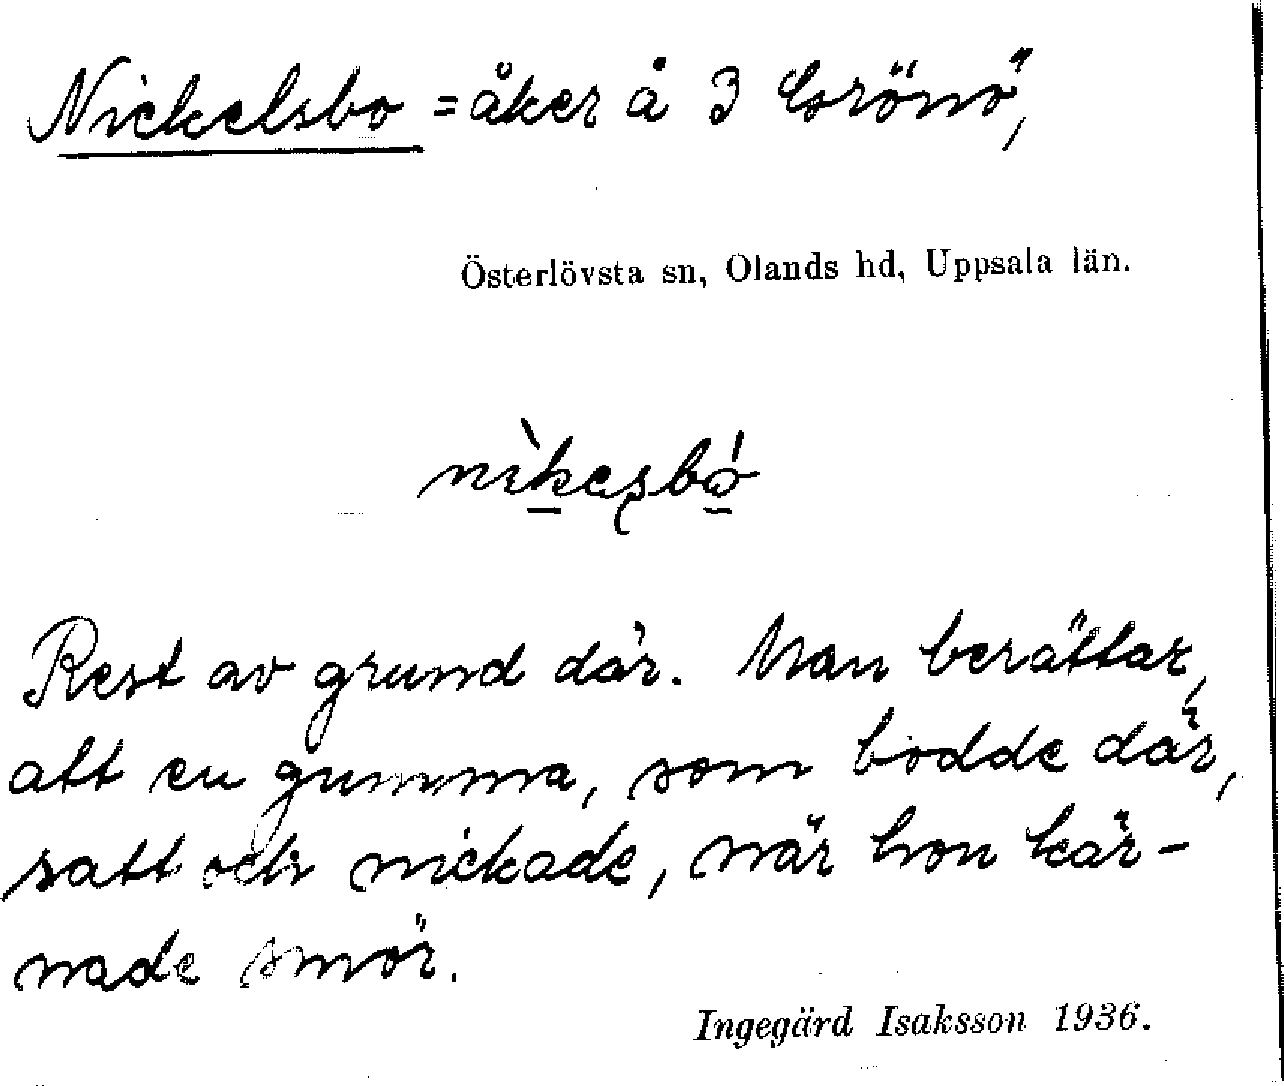 Nickelsbo = åker å 3 Grönö,
Österlövsta sn, Olands hd, Uppsala län.
nìkesbó
Rest av grund där. Man berättar,
att en gumma, som bodde där,
satt och nickade, när hon kär-
nade smör.
Ingegärd Isaksson 1936.